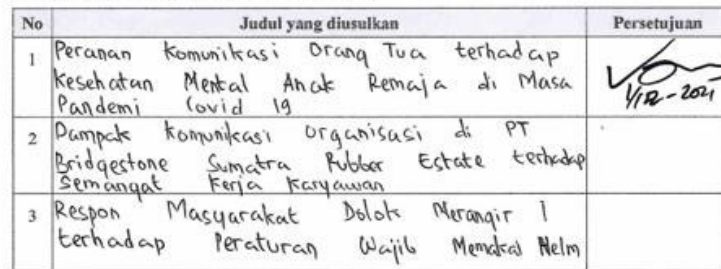 No Judul yang diusulkan Persetujuan
1 Peranan Komunikasi Orang Tua terhadap
Kesehatan Mental Anak Remaja di Masa
Pandemi Covid 19
1/12-2021
2 Dampak komunikasi organisasi di PT
Bridgestone Sumatra Rubber Estate terhadap
Semangat Kerja Karyawan
3 Respon Masyarakat Dolok Merangir I
terhadap Peraturan Wajib Memakai Helm